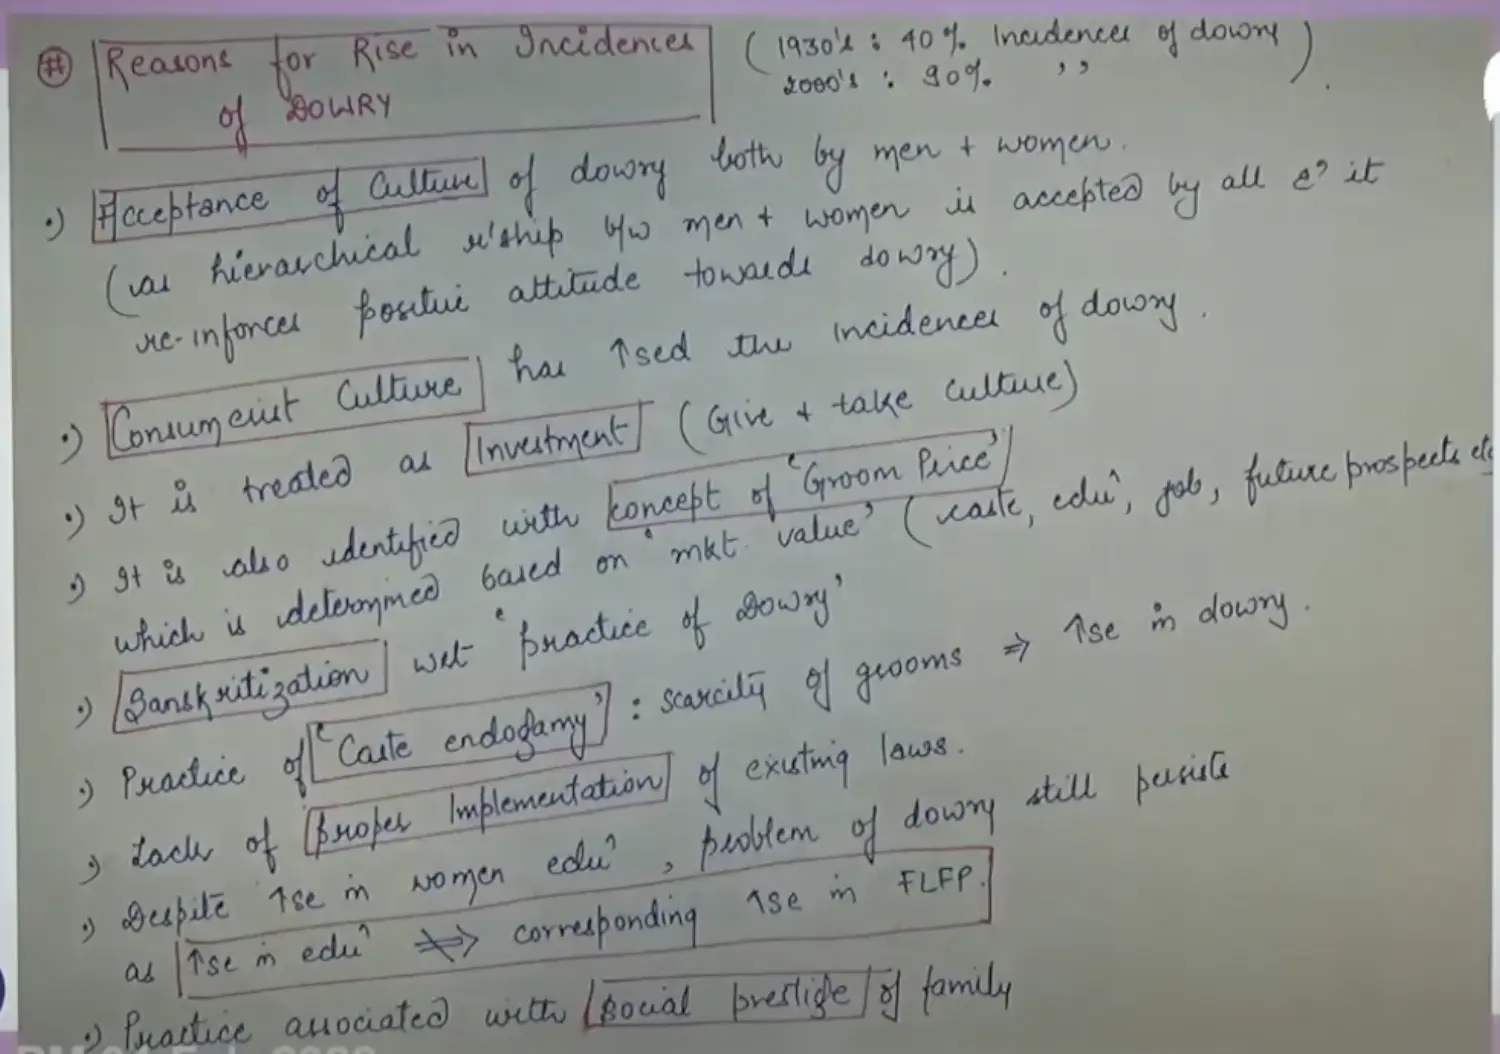 # Reasons for Rise in Incidences ( 1930's : 40% Incidences of dowry )
of DOWRY 2000's : 90% ,,
•) Acceptance of Culture of dowry both by men + women.
(as hierarchical r'ship b/w men + women is accepted by all & it
re-inforces positive attitude towards dowry).
•) Consumerist Culture has ↑sed the incidences of dowry.
•) It is treated as Investment (Give + take culture)
•) It is also identified with concept of 'Groom Price'
which is determined based on 'mkt. value' (caste, eduⁿ, job, future prospects etc
•) Sanskritization wrt 'practice of Dowry'
•) Practice of 'Caste endogamy' : scarcity of grooms ⇒ ↑se in dowry.
•) Lack of proper Implementation of existing laws.
•) Despite ↑se in women eduⁿ, problem of dowry still persists
as ↑se in eduⁿ ⇏ corresponding ↑se in FLFP.
•) Practice associated with social prestige of family